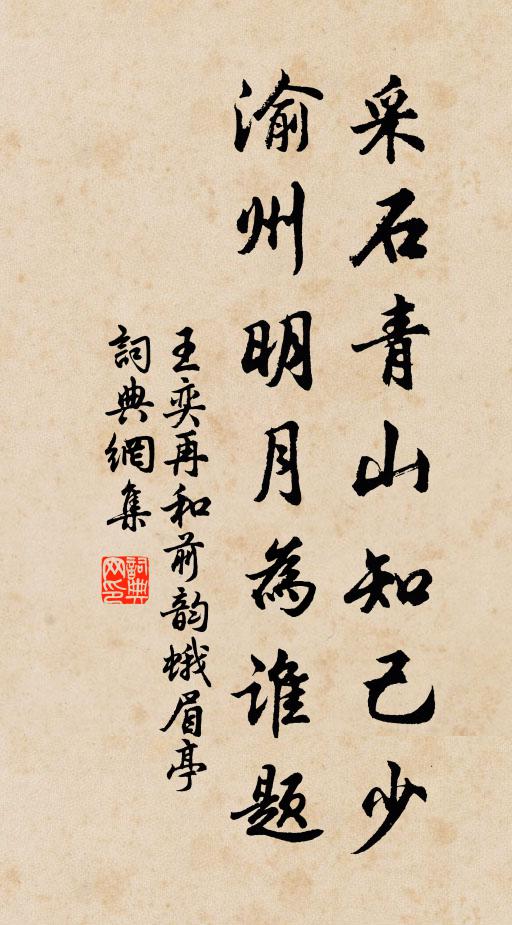 采石青山知己少
渝州明月為谁题
王奕再和前韵蛾眉亭
詞典網集
詞典网印